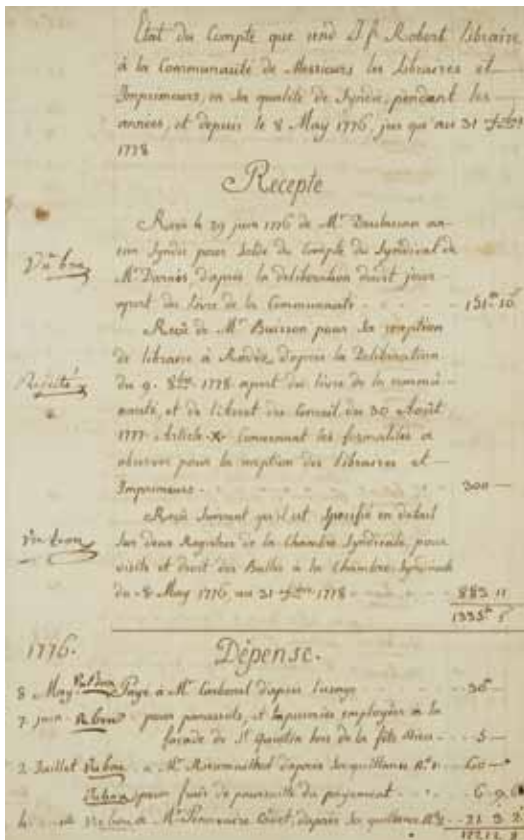 Etat du Compte que rend J. f. Robert libraire
à la Communauté de Messieurs les libraires et
Imprimeurs, en sa qualité de Syndic, pendant les
années, et depuis le 8 May 1776, jusqu'au 31
1778
Recepte
Reçu le 29 juin 1776 de Mr
Vu bon
Syndic pour solde du Compte du Syndicat de
Mr Darnès d'après la deliberation dudit jour
apert du livre de la Communauté 151 10
Reçu de Mr Buisson pour sa reception
de libraire à Rodéz, d'après la Deliberation
du 9. 8bre 1778 apert du livre de la commu-
nauté, et de l'Arret du Conseil du 30 Août
1777 Article Concernant les formalités a
observer pour la reception des libraires et
Imprimeurs 300
Reçu Suivant qu'il est Specifié en détail
Vu bon
Sur deux Registres de la Chambre Syndicale, pour
visite et droit des Balles à la Chambre Syndicale
du 8 May 1776, au 31 1778 883 11
1335 5
1776.
Dépense.
8 May Vu bon Payé à Mr d'après l'usage 30
7 juin Vu bon pour et employés à la
façade de St Quentin lors de la fête Dieu 5
2 Juillet Vu bon a Mr d'après Sa quittance No 1 60
Vu bon pour frais de poursuitte du payement 6 9 6
Vu bon a Mr d'après Sa quittance 21 3 2